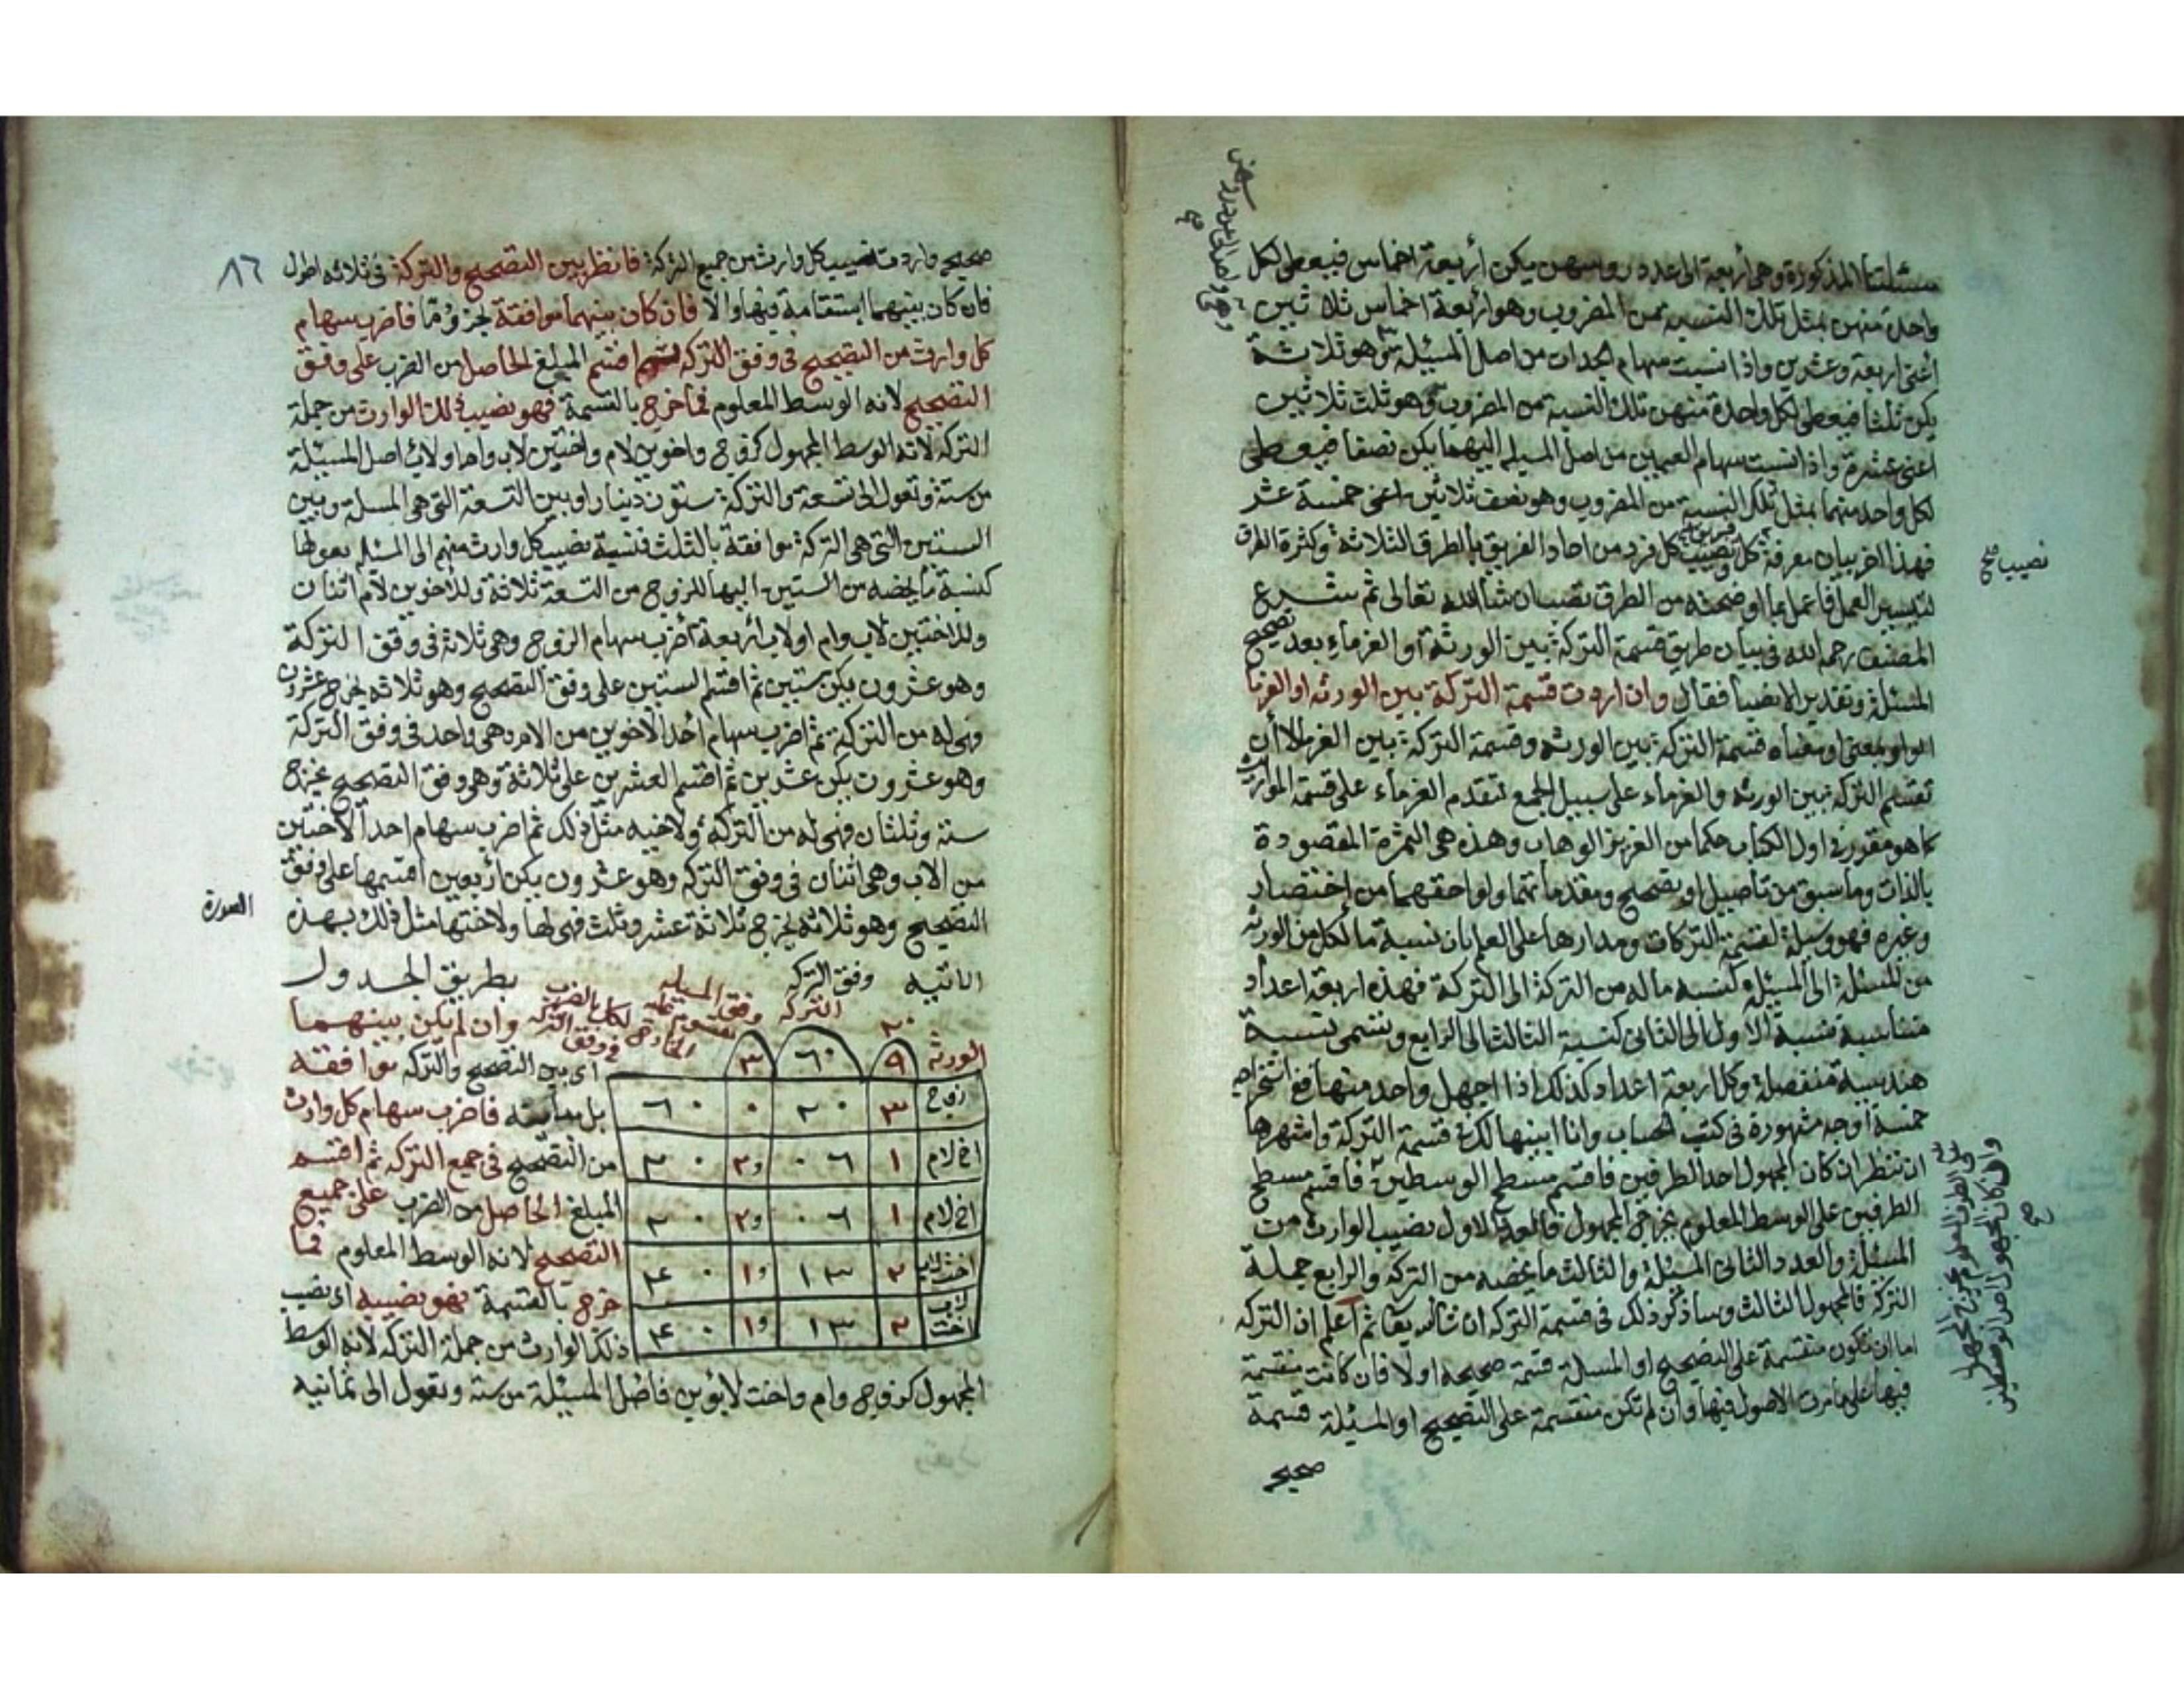 مسئلتنا المذكورة وهي أربعة الى عدد رؤسهن يكن أربعة اخماس فيعطى لكل
واحدة منهن بمثل تلك النسبة من المضروب وهو أربعة اخماس ثلاثين
أعنى اربعة وعشرين واذا نسبت سهام الجدات من اصل المسئلة وهو ثلاثة
يكن ثلثا فيعطى لكل واحدة منهن تلك النسبة من المضروب وهو ثلث ثلاثين
اعنى عشرة واذا نسبت سهام العمين من اصل المسئلة اليهما يكن نصفا فيعطى
لكل واحد منهما بمثل تلك النسبة من المضروب وهو نصف ثلاثين اعنى خمسة عشر
فهذا اخر بيان معرفة كل ونصيب كل فرد من احاد الفريق بالطرق الثلاثة وكثرة الطرق
لتيسير العمل فاعمل بما اوضحته من الطرق تصب ان شاء الله تعالى ثم شرع
المصنف رحمه الله فى بيان طريق قسمة التركة بين الورثة أو الغرماء بعد تصحيح
المسئلة وتقدير الانصبا فقال وان اردت قسمة التركة بين الورثه او الغرما
الواو بمعنى او معناه قسمة التركة بين الورثه وقسمة التركة بين الغرما لا أن
تقسم التركة بين الورثه والغرماء على سبيل الجمع لتقدم الغرماء على قسمة المواريث
كما هو مقرر فى اول الكتاب حكما من العزيز الوهاب وهذه هى الثمرة المقصودة
بالذات وما سبق من تاصيل او تصحيح ومقدماتهما ولواحقهما من اختصار
وغيره فهو وسيلة لقسمة التركات ومدارها على العلم بان نسبة ما لكل من الورثه
من المسئلة الى المسئلة كنسبه ماله من التركة الى التركة فهذه اربعة اعداد
متناسبة نسبة الاول الى الثانى كنسبة الثالث الى الرابع وتسمى نسبة
هندسية منفصلة وكل اربعة اعداد كذلك اذا جهل واحد منها ففى استخراجه
خمسة أوجه مشهورة فى كتب الحساب وانا ابينها لك فى قسمة التركة واشهرها
ان تنظر ان كان المجهول احد الطرفين فاقسم مسطح الوسطين فاقسم مسطح
الطرفين على الوسط المعلوم يخرج المجهول فالعدد الاول نصيب الوارث من
المسئلة والعدد الثانى المسئلة والثالث ما يخصه من التركه والرابع جملة
التركة فالمجهول الثالث وساذكر ذلك فى قسمة التركه ان شا الله تعالى ثم اعلم ان التركه
اما ان تكون منقسمة على التصحيح او المسئلة قسمة صحيحه او لا فان كانت منقسمة
فيها على ما مرت الاصول فيها وان لم تكن منقسمة على التصحيح او المسئلة قسمة
صحيحه
نصيب صح
وان كان المجهول احد الوسطين
على الطرف المعلوم يخرج المجهول
صح
٨٦
صحيحه واردت نصيب كل وارث من جميع التركة فانظر بين التصحيح والتركة فى ثلاثه احوال
فان كان بينهما استقامة فيها والا فان كان بينهما موافقة بجزؤ ما فاضرب سهام
كل وارث من التصحيح فى وفق التركه ثم اقسم المبلغ الحاصل من الضرب على وفق
التصحيح لانه الوسط المعلوم فما خرج بالقسمة فهو نصيب ذلك الوارث من جملة
التركه لانه الوسط المجهول كزوج واخوين لام واختين لاب وام او لاب اصل المسئلة
من ستة وتعول الى تسعة والتركة ستون دينارا وبين التسعة التى هى المسئلة وبين
الستين التى هى التركة موافقة بالثلث فنسبة نصيب كل وارث منهم الى المسئلة بعولها
كنسبة ما يخصه من الستين اليها للزوج من التسعة ثلاثة وللاخوين لام اثنان
وللاختين لاب وام او لاب أربعة أضرب سهام الزوج وهى ثلاثة فى وفق التركة
وهو عشرون يكن ستين ثم اقسم الستين على وفق التصحيح وهو ثلاثه يخرج عشرون
فهى له من التركة ثم اضرب سهام أحد الاخوين من الام وهى واحد فى وفق التركة
وهو عشرون يكن عشرين ثم اقسم العشرين على ثلاثة وهى وفق التصحيح يخرج
ستة وثلثان فهى له من التركة ولاخيه مثل ذلك ثم اضرب سهام احد الاختين
من الاب وهى اثنان فى وفق التركه وهو عشرون يكن أربعين اقسمها على وفق
التصحيح وهو ثلاثه يخرج ثلاثة عشر وثلث فهى لها ولاختها مثل ذلك بهذه
الصورة
الاتيه وفق التركه بطريق الجدول
٢٠ التركه وفق المسئله
الورثه ٩ ٦٠ ٣
زوج ٣ ٢٠ ٠ ٦٠
اخ لام ١ ٠٦ و٢ ٢٠
اخ لام ١ ٠٦ و٢ ٢٠
اخت لاب ٢ ١٣ و١ ٤٠
اخت لاب ٢ ١٣ و١ ٤٠
وان لم يكن بينهما
اى بين التصحيح والتركه موافقه
بل مباينه فاضرب سهام كل وارث
من التصحيح فى جميع التركه ثم اقسم
المبلغ الحاصل من الضرب على جميع
التصحيح لانه الوسط المعلوم فما
خرج بالقسمة فهو نصيبه اى نصيب
ذلك الوارث من جملة التركه لانه الوسط
المجهول كزوج وام واخت لابوين فاصل المسئلة من سته وتعول الى ثمانيه